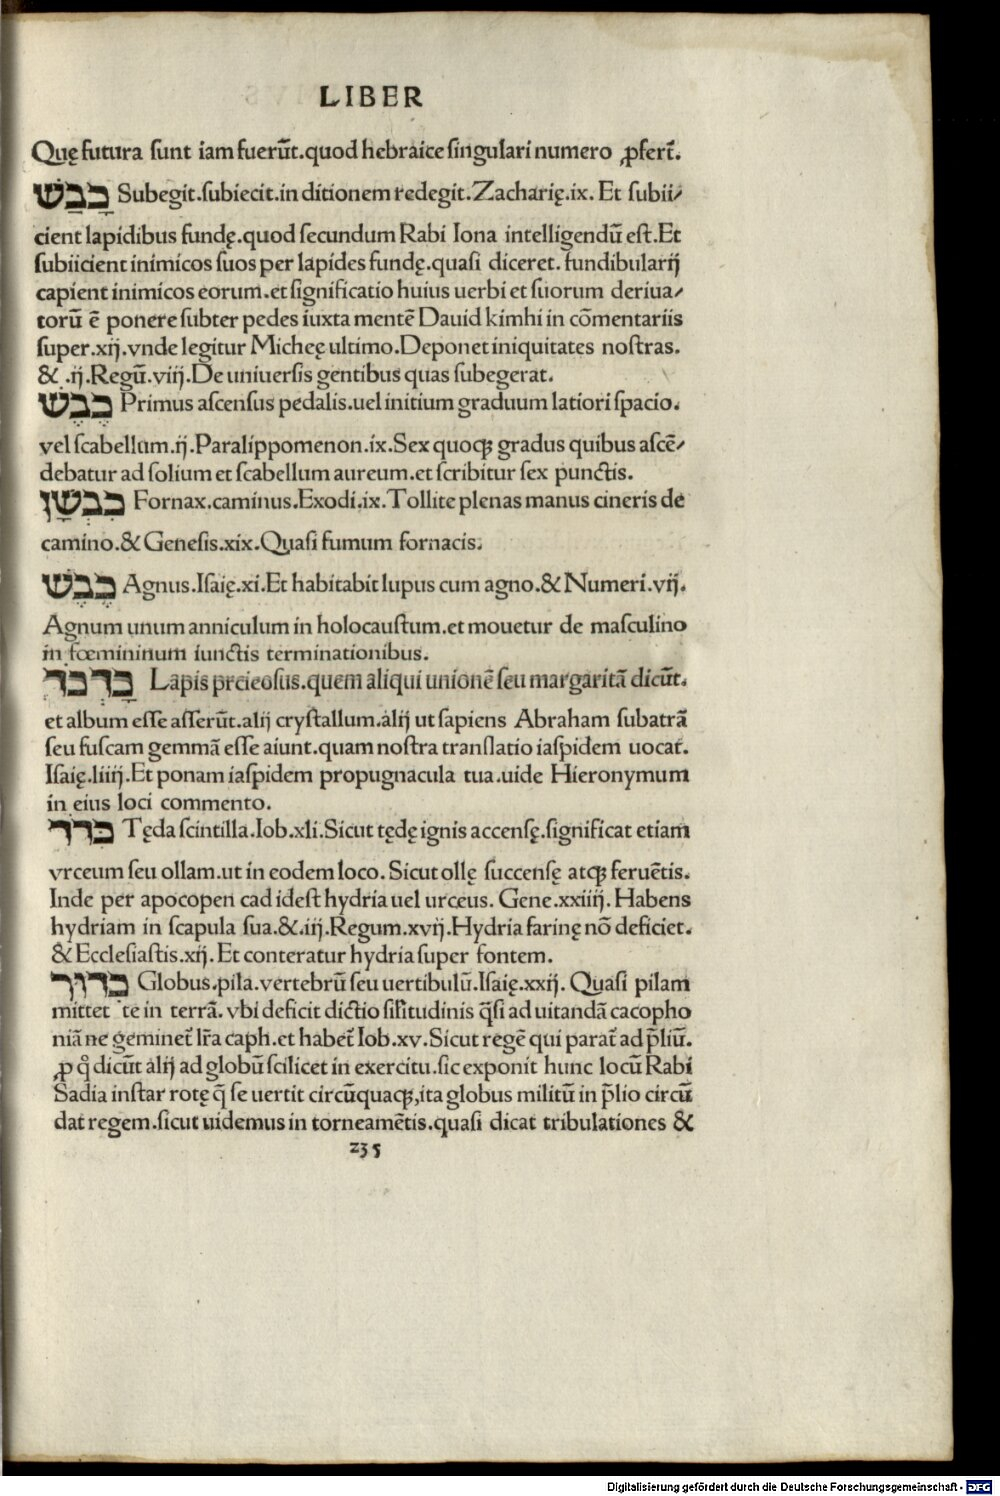 LIBER
Quę futura sunt iam fuerūt.quod hebraice singulari numero ꝓfert̄.
כָבַשׁ Subegit.subiecit.in ditionem redegit.Zacharię.ix. Et subii⸗
cient lapidibus fundę.quod secundum Rabi Iona intelligendū est.Et
subiicient inimicos suos per lapides fundę.quasi diceret. fundibularij
capient inimicos eorum.et significatio huius uerbi et suorum deriua⸗
torū ē ponere subter pedes iuxta mentē Dauid kimhi in cōmentariis
super.xij.vnde legitur Micheę ultimo.Deponet iniquitates nostras.
& .ij.Regū.viij.De uniuersis gentibus quas subegerat.
כֶבֶשׁ Primus ascensus pedalis.uel initium graduum latiori spacio.
vel scabellum.ij.Paralippomenon.ix.Sex quoqꝫ gradus quibus ascē⸗
debatur ad solium et scabellum aureum.et scribitur sex punctis.
כִבְשָׁן Fornax.caminus.Exodi.ix.Tollite plenas manus cineris de
camino.& Genesis.xix.Quasi fumum fornacis.
כֶבֶשׂ Agnus.Isaię.xi.Et habitabit lupus cum agno.& Numeri.vij.
Agnum unum anniculum in holocaustum.et mouetur de masculino
in fœmininum iunctis terminationibus.
כַּדְכֹּד Lapis prcieosus.quem aliqui unionē seu margaritā dicūt.
et album esse asserūt.alij crystallum.alij ut sapiens Abraham subatrā
seu fuscam gemmā esse aiunt.quam nostra translatio iaspidem uocat.
Isaię.liiij.Et ponam iaspidem propugnacula tua.uide Hieronymum
in eius loci commento.
כִּדֹד Tęda scintilla.Iob.xli.Sicut tędę ignis accensę.significat etiam
vrceum seu ollam.ut in eodem loco. Sicut ollę succensę atqꝫ feruētis.
Inde per apocopen cad idest hydria uel urceus. Gene.xxiiij. Habens
hydriam in scapula sua.&.iij.Regum.xvij.Hydria farinę nō deficiet.
& Ecclesiastis.xij. Et conteratur hydria super fontem.
כִּדוּר Globus.pila.vertebrū seu uertibulū.Isaię.xxij. Quasi pilam
mittet te in terrā. vbi deficit dictio sil̄itudinis q̄si ad uitandā cacopho
niā ne geminet̄ lr̄a caph.et habet̄ Iob.xv.Sicut regē qui parat̄ ad p̄liū.
ꝓ qͦ dicūt alij ad globū scilicet in exercitu.sic exponit hunc locū Rabi
Sadia instar rotę q̄ se uertit circūquaqꝫ,ita globus militū in p̄lio circū
dat regem.sicut uidemus in torneamētis.quasi dicat tribulationes &
235
Digitalisierung gefördert durch die Deutsche Forschungsgemeinschaft - DFG